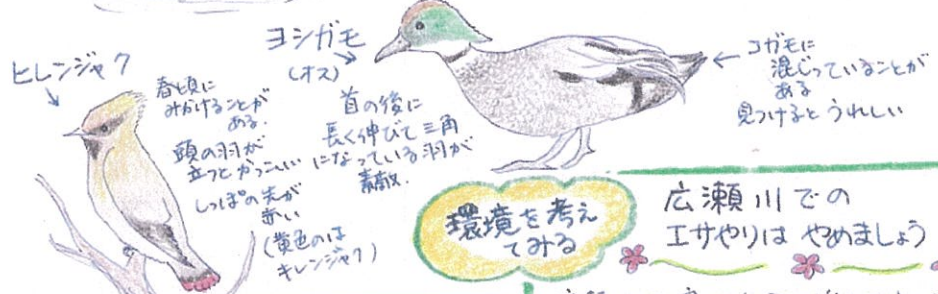 ヒレンジャク
春頃に
みかけることが
ある.
頭の羽が
立つとかっこいい
しっぽの先が
赤い
(黄色のは
キレンジャク)
ヨシガモ
(オス)
首の後に
長く伸びて三角
になっている羽が
素敵.
コガモに
混じっていることが
ある
見つけると うれしい
環境を考え
てみる
広瀬川での
エサやりは やめましょう